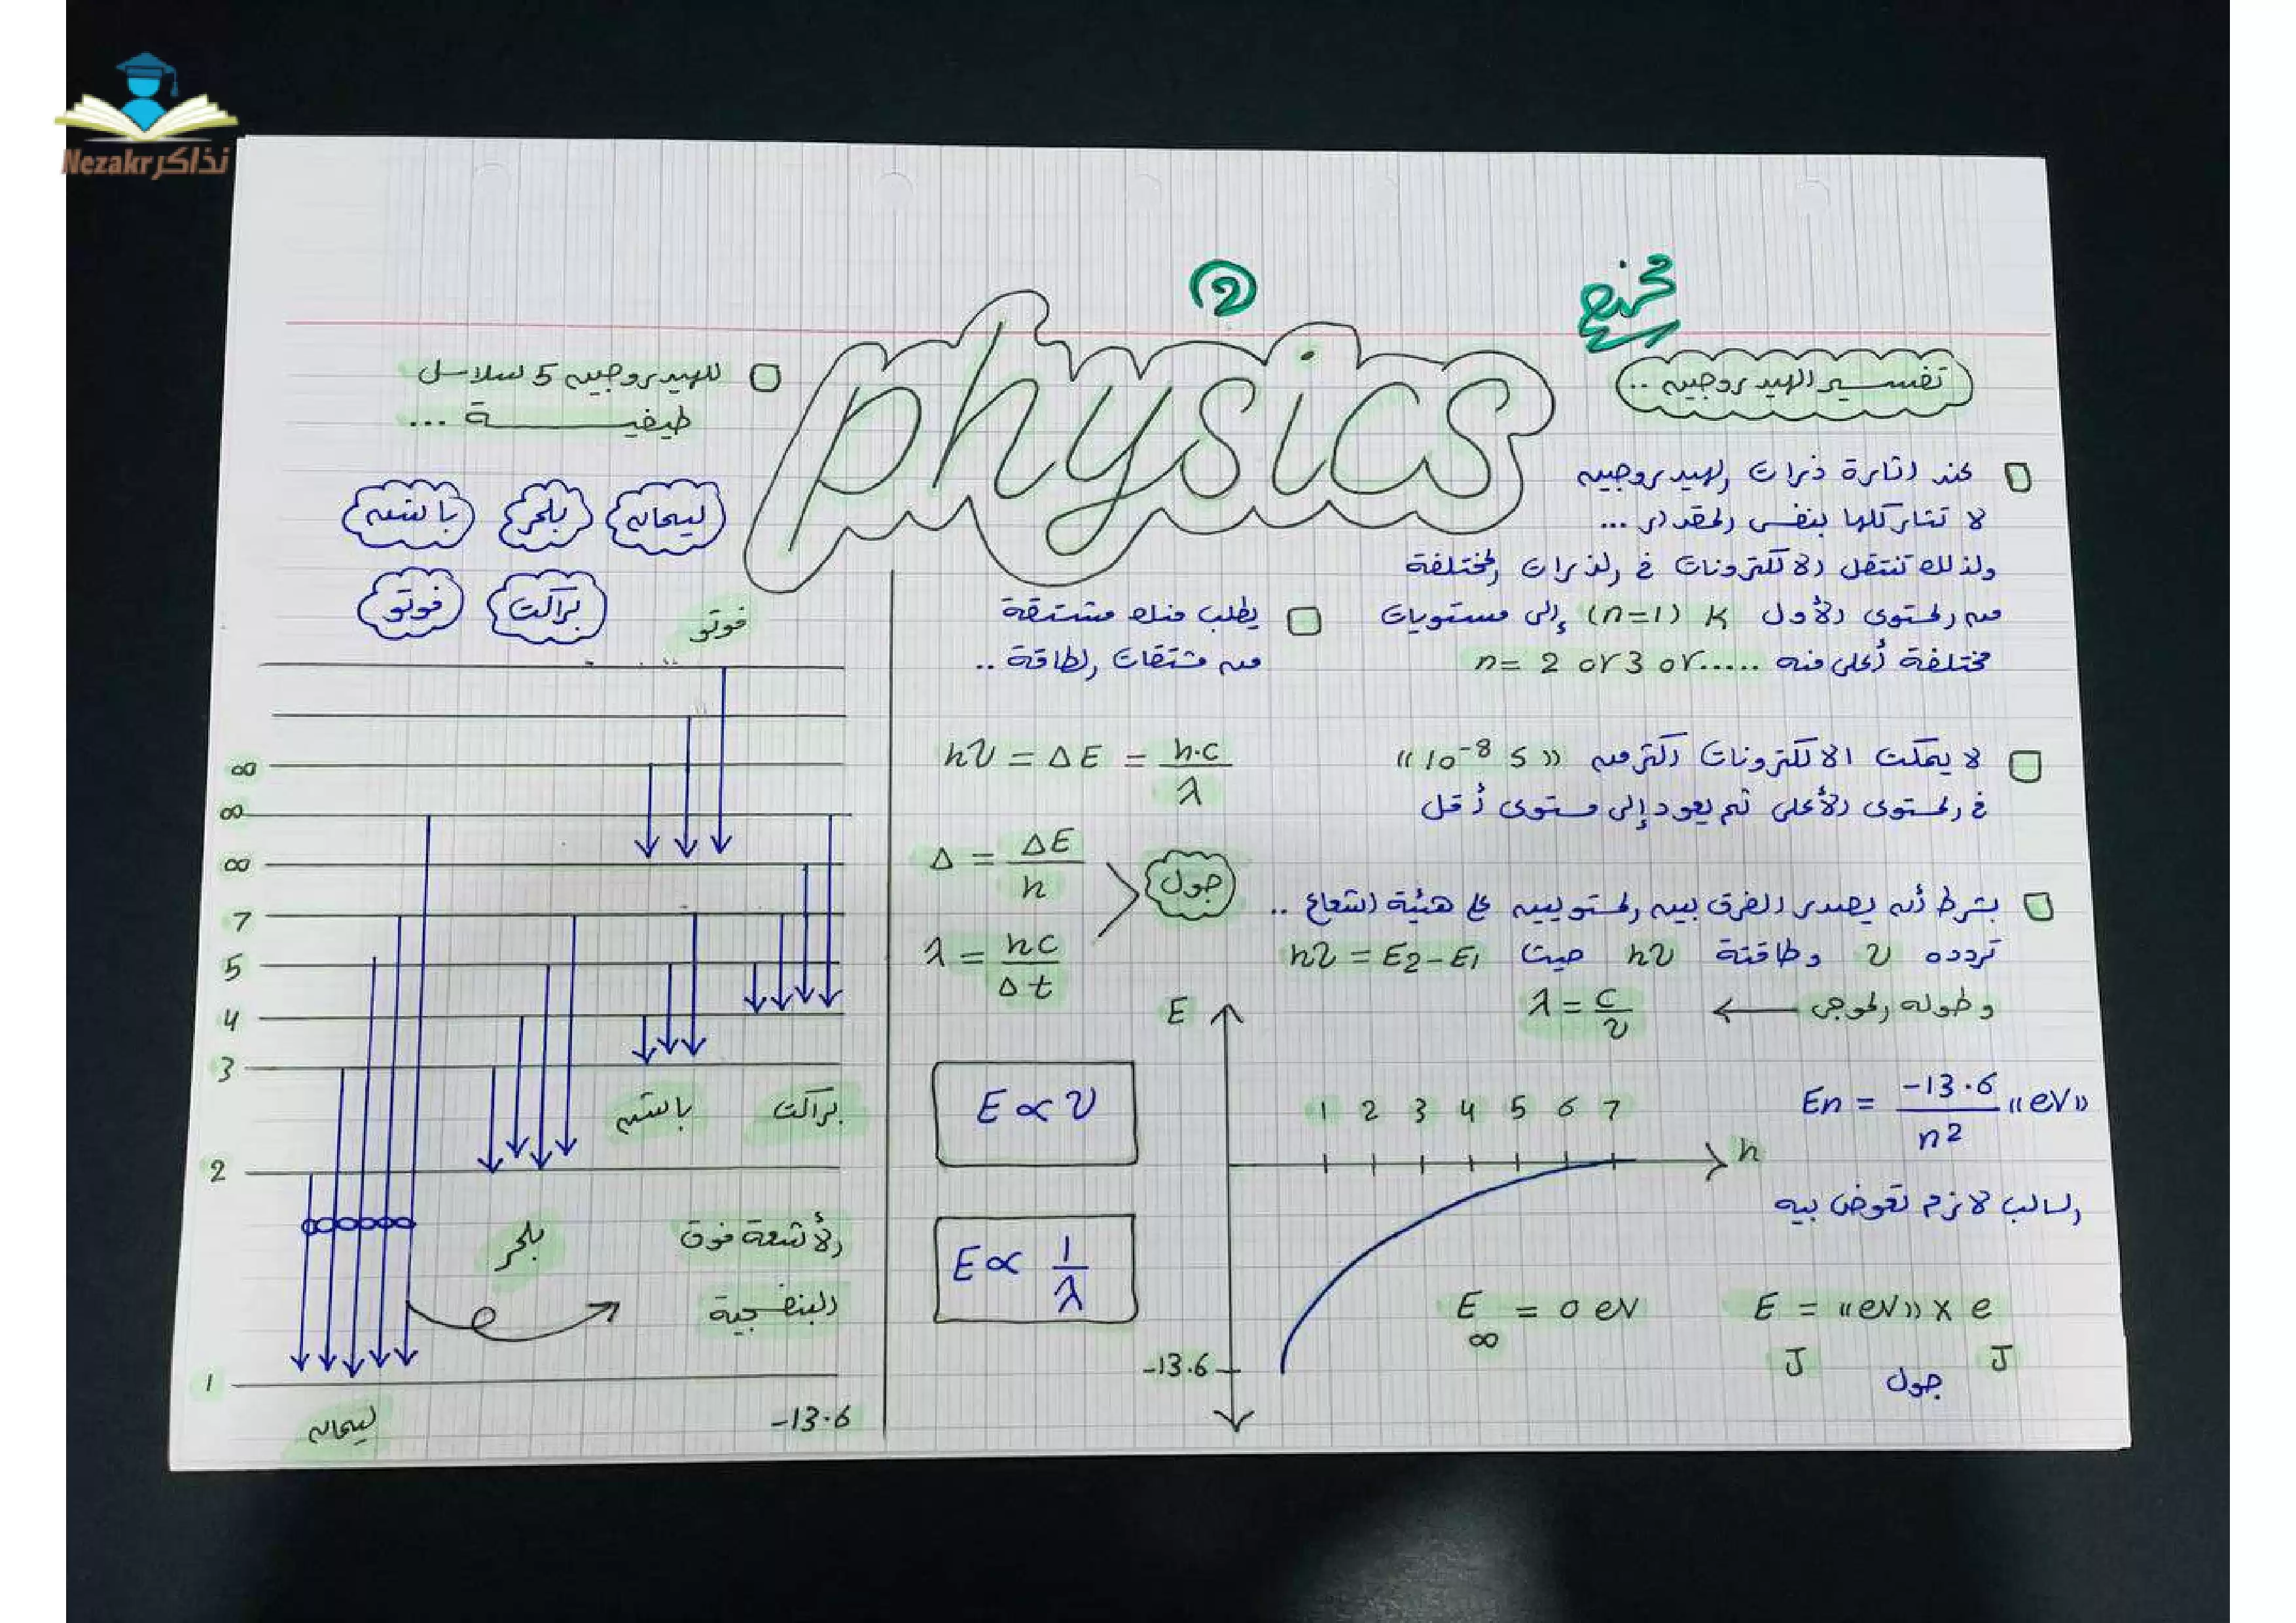 Nezakr نذاكر
2
physics
تفسير الهيدروجين ..
عند اثارة ذرات الهيدروجين
لا تثار كلها بنفس المقدار ...
ولذلك تنتقل الالكترونات في الذرات المختلفة
من المستوى الأول K (n=1) إلى مستويات
مختلفة أعلى منه ..... n= 2 or 3 or
لا يمكث الالكترونات اكثر من « 10⁻⁸ s »
في المستوى الأعلى ثم يعود إلى مستوى أقل
بشرط أن يصدر الفرق بين المستويين على هيئة اشعاع ..
تردده ν وطاقتة hν حيث hν = E2-E1
وطوله الموجى ← λ = c/ν
En = -13.6/n² «eV»
السالب لازم تعوض بيه
E = «eV» x e
J J
جول
E∞ = 0 eV
E
1 2 3 4 5 6 7
n
-13.6
يطلب منك مشتقة
من مشتقات الطاقة ..
hν = ΔE = h.c/λ
Δ = ΔE/h
جول
λ = hc/Δt
E ∝ ν
E ∝ 1/λ
للهيدروجين 5 سلاسل
طيفية ...
ليمان بلمر باشن
براكت فوتو
فوتو
∞
∞
∞
7
5
4
3
باشن براكت
2
بلمر
الأشعة فوق
البنفسجية
1
ليمان -13.6